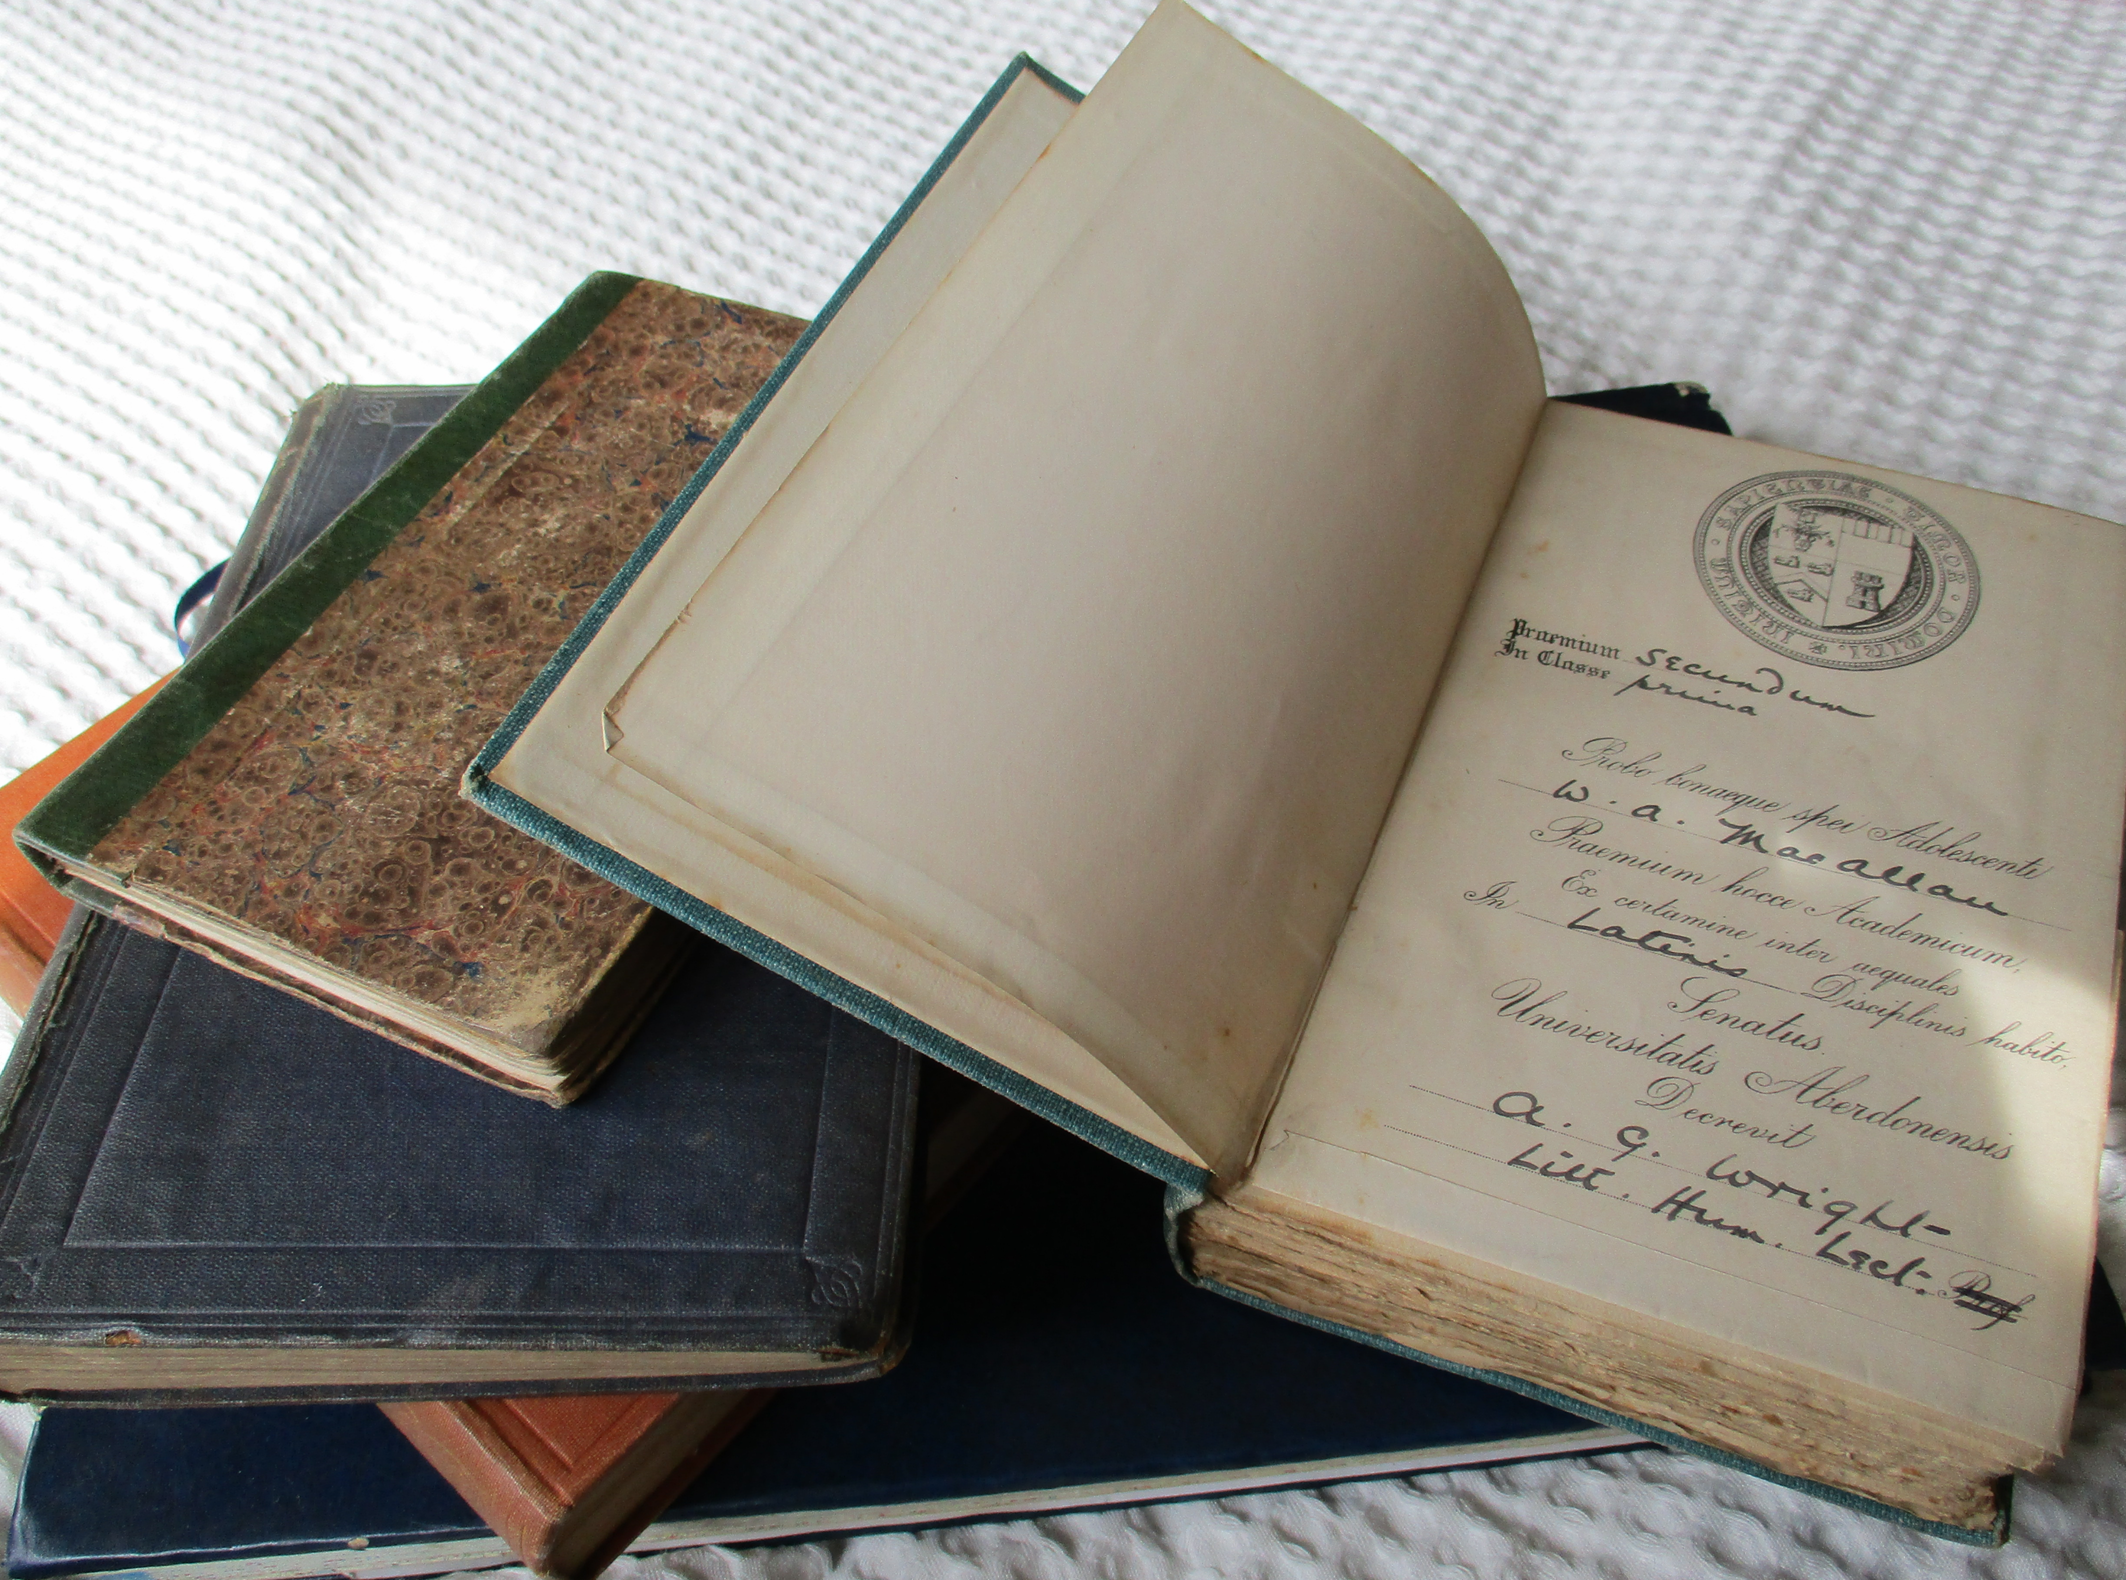 INITIUM · SAPIENTIAE · TIMOR · DOMINI.
Praemium secundum
In Classe prima
Probo bonaeque spei Adolescenti
W. A. MacAllan
Praemium hocce Academicum,
Ex certamine inter aequales
In Latinis Disciplinis habito,
Senatus
Universitatis Aberdonensis
Decrevit
A. G. Wright
Litt. Hum. Lect. Prof